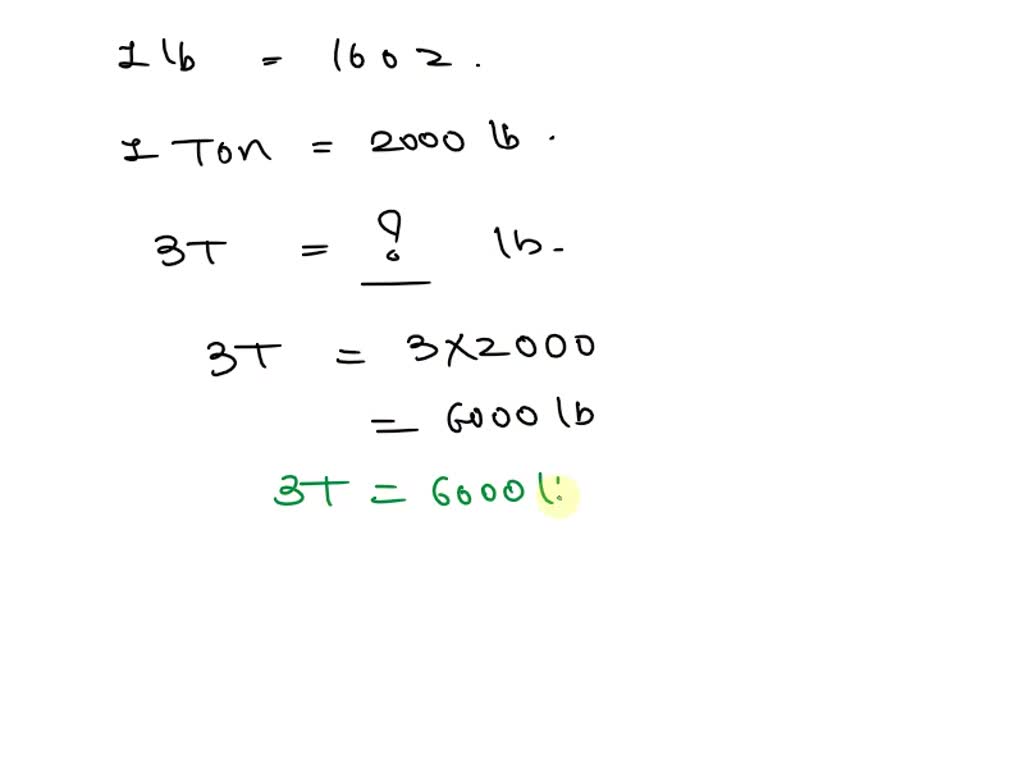 1 lb = 16 oz.
1 Ton = 2000 lb.
3T = ? lb.
3T = 3×2000
= 6000 lb
3T = 6000 l